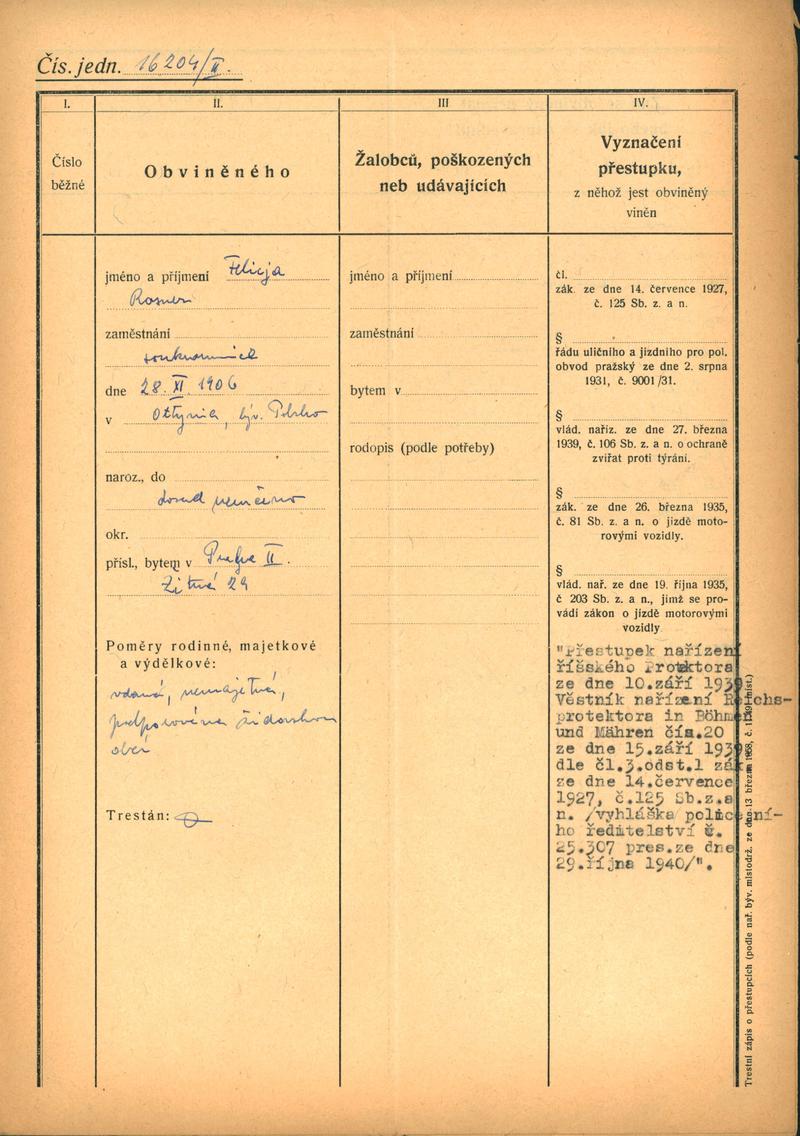 Čís. jedn. 16204/II.
I.
II.
III
IV.
Číslo
běžné
Obviněného
Žalobců, poškozených
neb udávajících
Vyznačení
přestupku,
z něhož jest obviněný
viněn
jméno a příjmení Felicja
Rosner
zaměstnání
dne 28. XI. 1906
v Ottynia, býv. Polsko
naroz., do
dosud neurčeno
okr.
přísl., bytem v Praha II.
Žitná 29
Poměry rodinné, majetkové
a výdělkové:
vdaná, nemajetná,
podporována židovskou
obcí
Trestán:
jméno a příjmení
zaměstnání
bytem v
rodopis (podle potřeby)
čl.
zák. ze dne 14. července 1927,
č. 125 Sb. z. a n.
§
řádu uličního a jízdního pro pol.
obvod pražský ze dne 2. srpna
1931, č. 9001/31.
§
vlád. naříz. ze dne 27. března
1939, č. 106 Sb. z. a n. o ochraně
zvířat proti týrání.
§
zák. ze dne 26. března 1935,
č. 81 Sb. z. a n. o jízdě moto-
rovými vozidly.
§
vlád. nař. ze dne 19. října 1935,
č 203 Sb. z. a n., jímž se pro-
vádí zákon o jízdě motorovými
vozidly
"Přestupek nařízení
říšského Protektora
ze dne 10.září 1939
Věstník nařízení Reichs-
protektora in Böhmen
und Mähren čís.20
ze dne 15.září 1939
dle čl.3.odst.1 zák
ze dne 14.července
1927, č.125 Sb.z.a
n. /vyhláška policejní-
ho ředitelství č.
25.307 pres.ze dne
29.října 1940/".
Trestní zápis o přestupcích (podle nař. býv. místodrž. ze dne 13 března